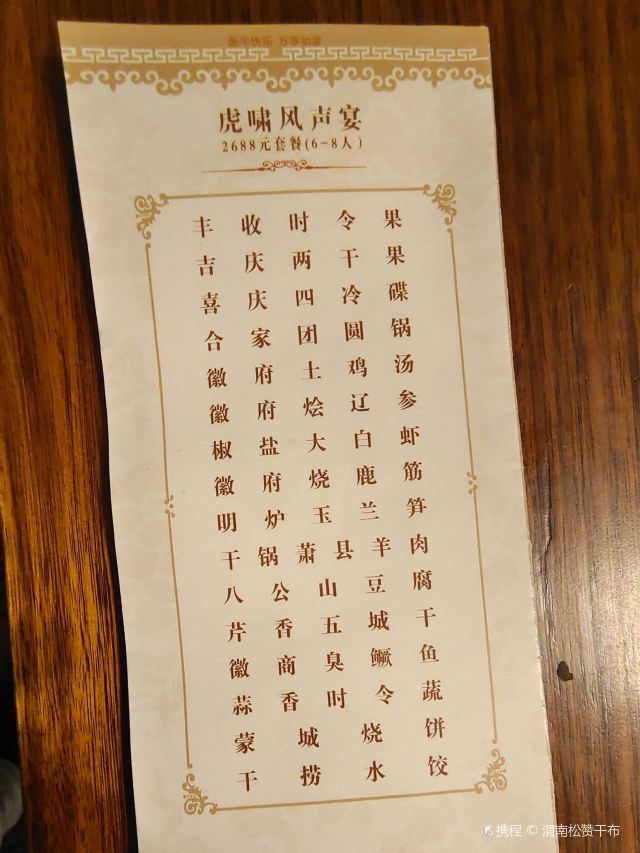 新年快乐 万事如意
虎啸风声宴
2688元套餐(6-8人)
丰收时令果
吉庆两干果
喜庆四冷碟
合家团圆锅
徽府土鸡汤
徽府烩辽参
椒盐大白虾
徽府烧鹿筋
明炉玉兰笋
干锅萧县羊肉
八公山豆腐
芹香五城干
徽商臭鳜鱼
蒜香时令蔬
蒙城烧饼
干捞水饺
携程 © 渭南松赞干布